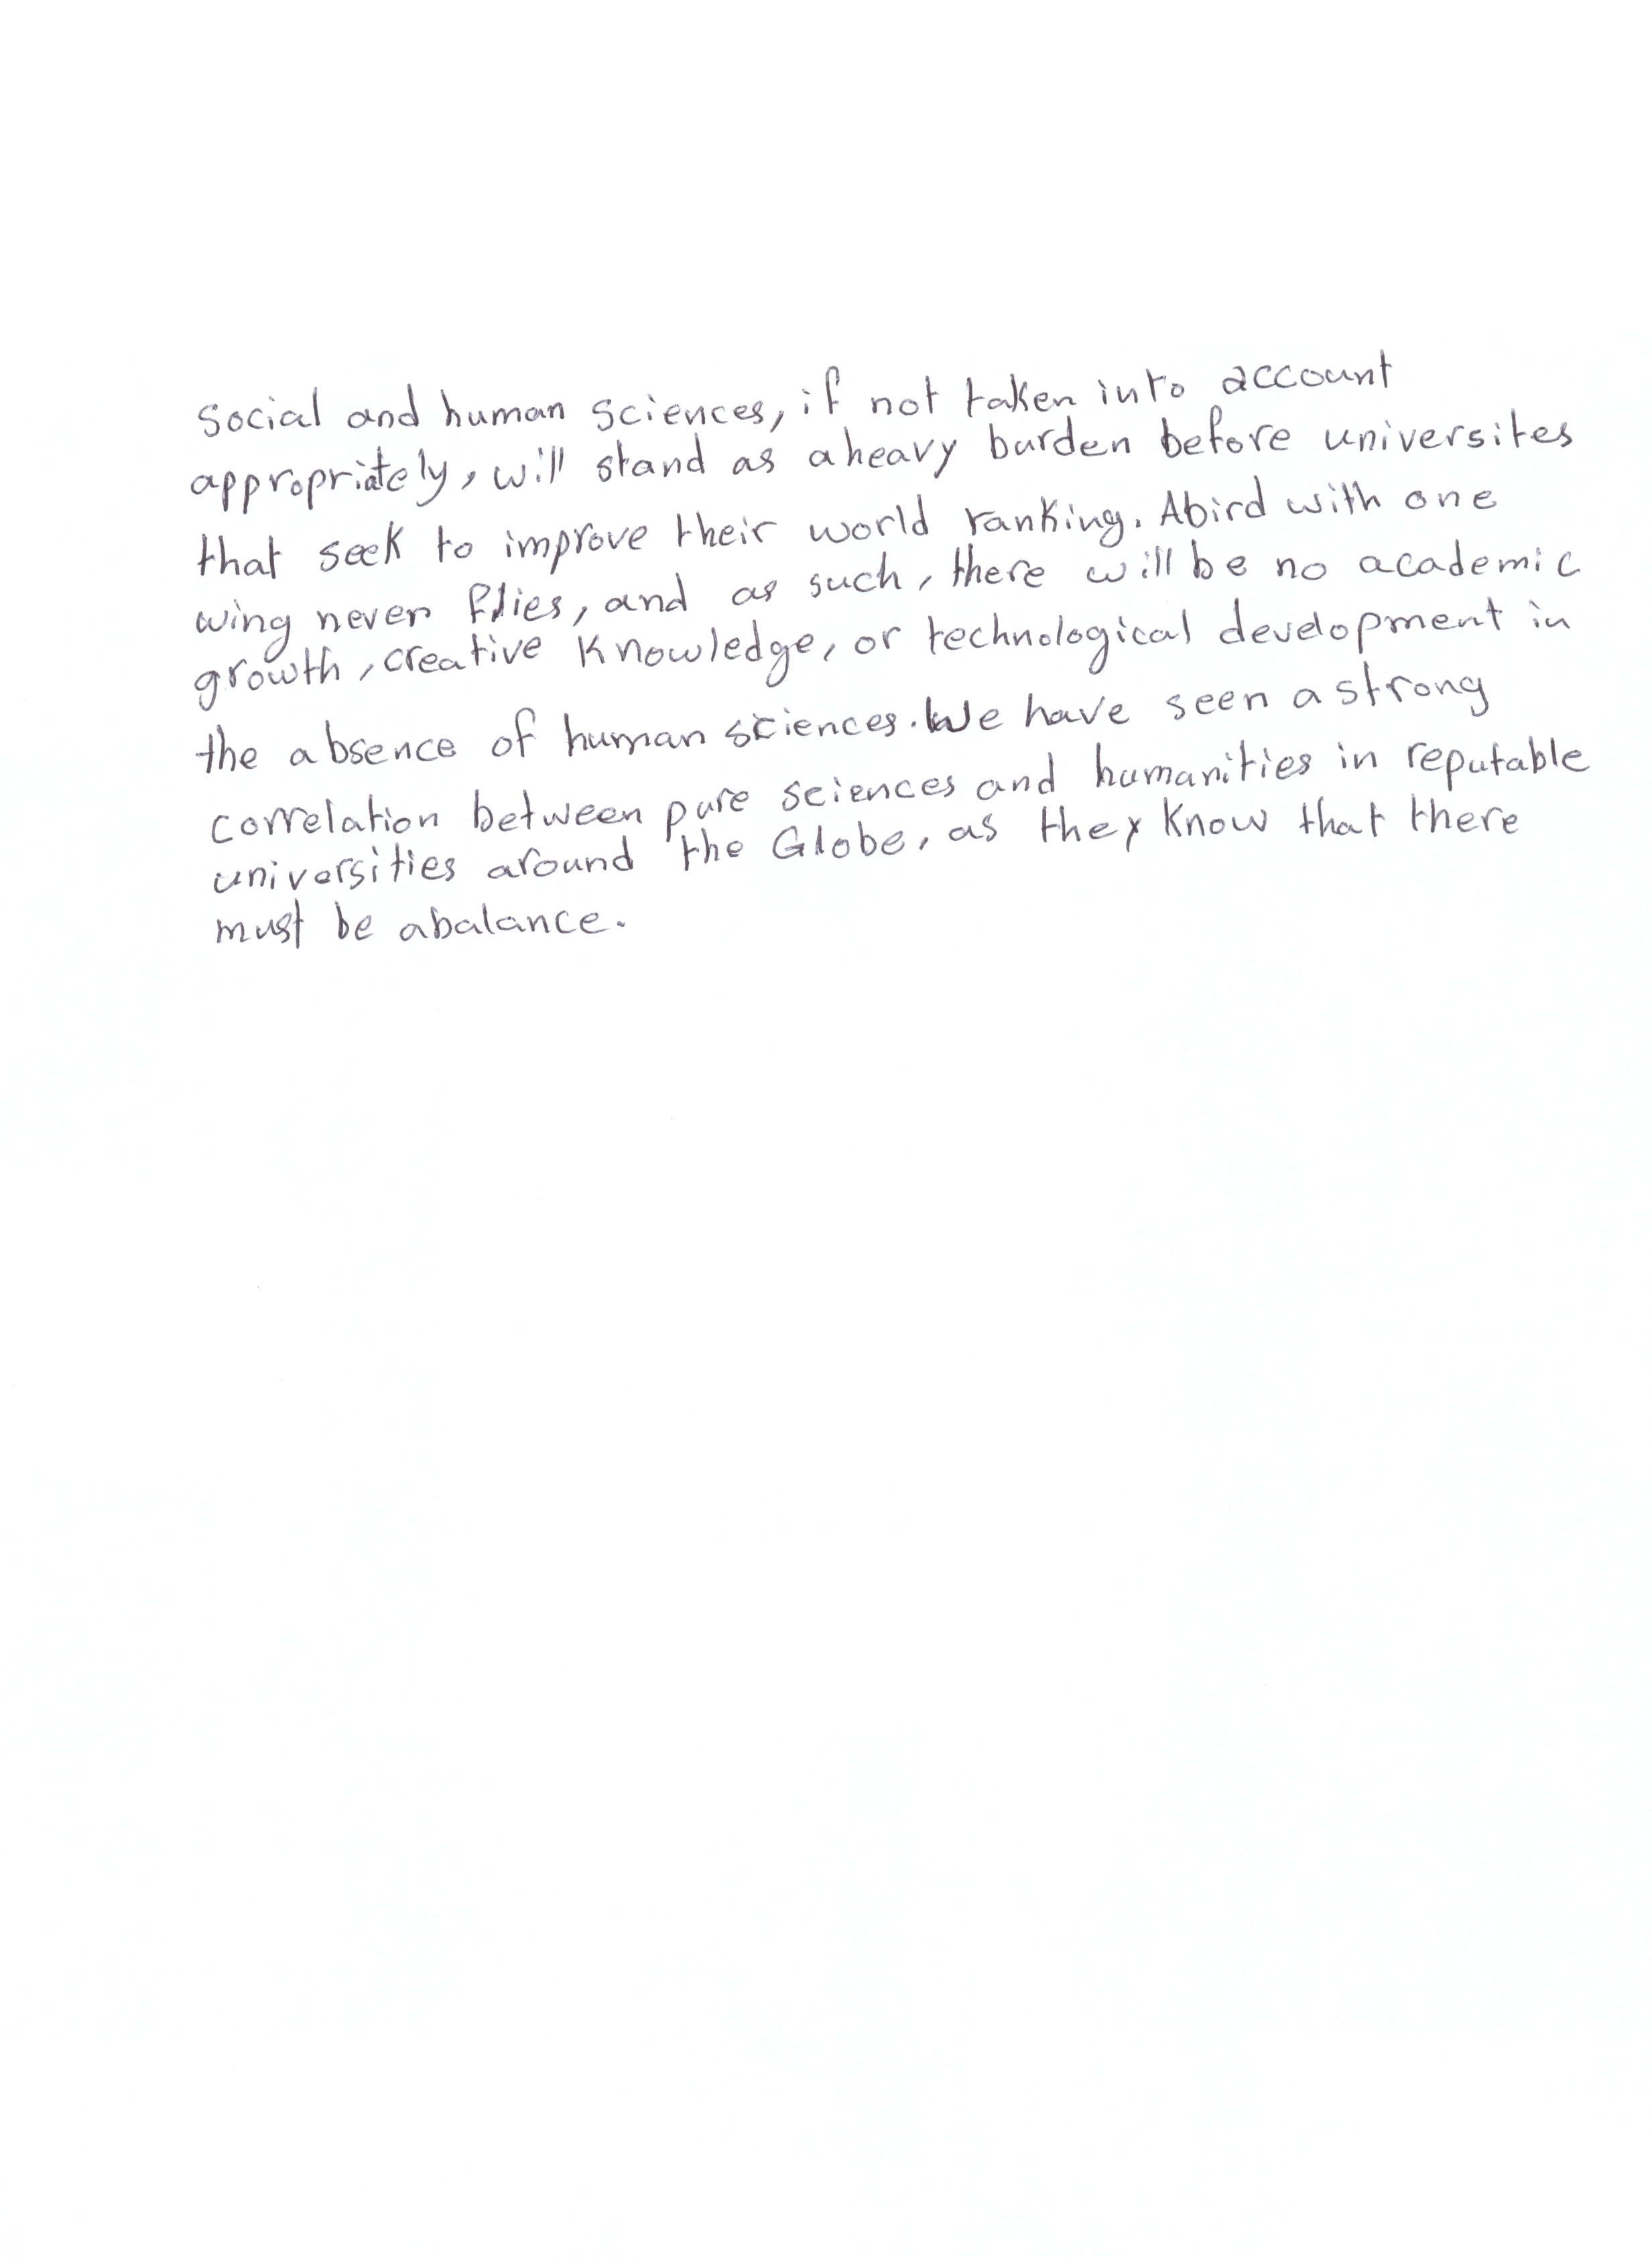 Social and human sciences, if not taken into account
appropriately, will stand as a heavy burden before universites
that seek to improve their world ranking. A bird with one
wing never flies, and as such, there will be no academic
growth, creative knowledge, or technological development in
the absence of human sciences. We have seen a strong
correlation between pure sciences and humanities in reputable
universities around the Globe, as they know that there
must be a balance.